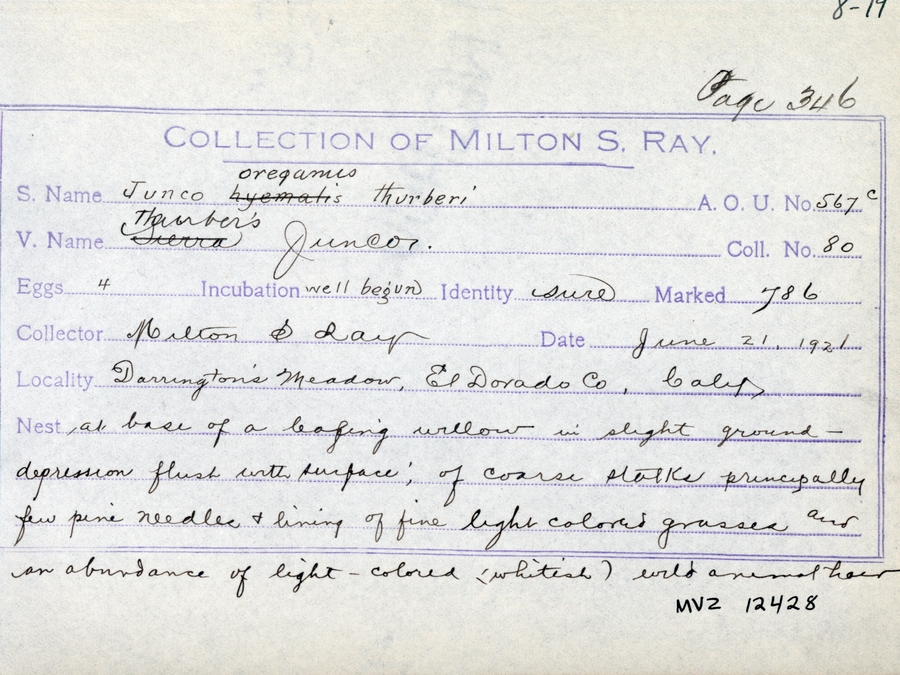 8-19
Page 346
COLLECTION OF MILTON S. RAY.
oreganus
S. Name Junco hyemalis thurberi A. O. U. No. 567c
Thurber's
V. Name Sierra Junco. Coll. No. 80
Eggs 4 Incubation well begun Identity sure Marked 786
Collector Milton S Ray Date June 21, 1921
Locality Darrington's Meadow, El Dorado Co, Calif
Nest at base of a leafing willow in slight ground-
depression flush with surface; of coarse stalks principally
few pine needles & lining of fine light colored grasses and
an abundance of light-colored (whitish) wild animal hair
MVZ 12428